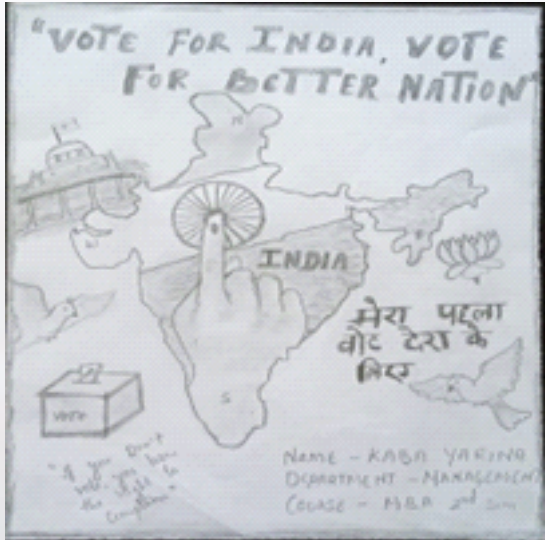 "VOTE FOR INDIA, VOTE
FOR BETTER NATION"
N
INDIA
मेरा पहला
वोट देश के
लिए
S
VOTE
"If you Don't
vote, you have
the Right to
Complain"
NAME - KABA YARING
DEPARTMENT - MANAGEMENT
COURSE - MBA 2nd Sem